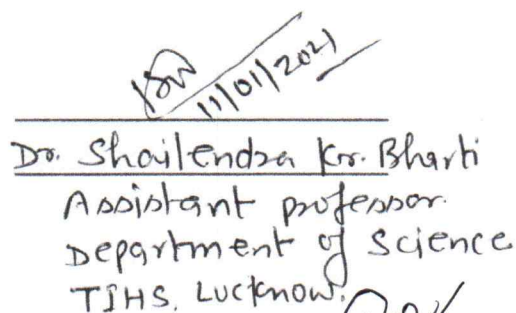 11/01/2021
Dr. Shailendra Kr. Bharti
Assistant professor.
Department of Science
TIHS, Lucknow.